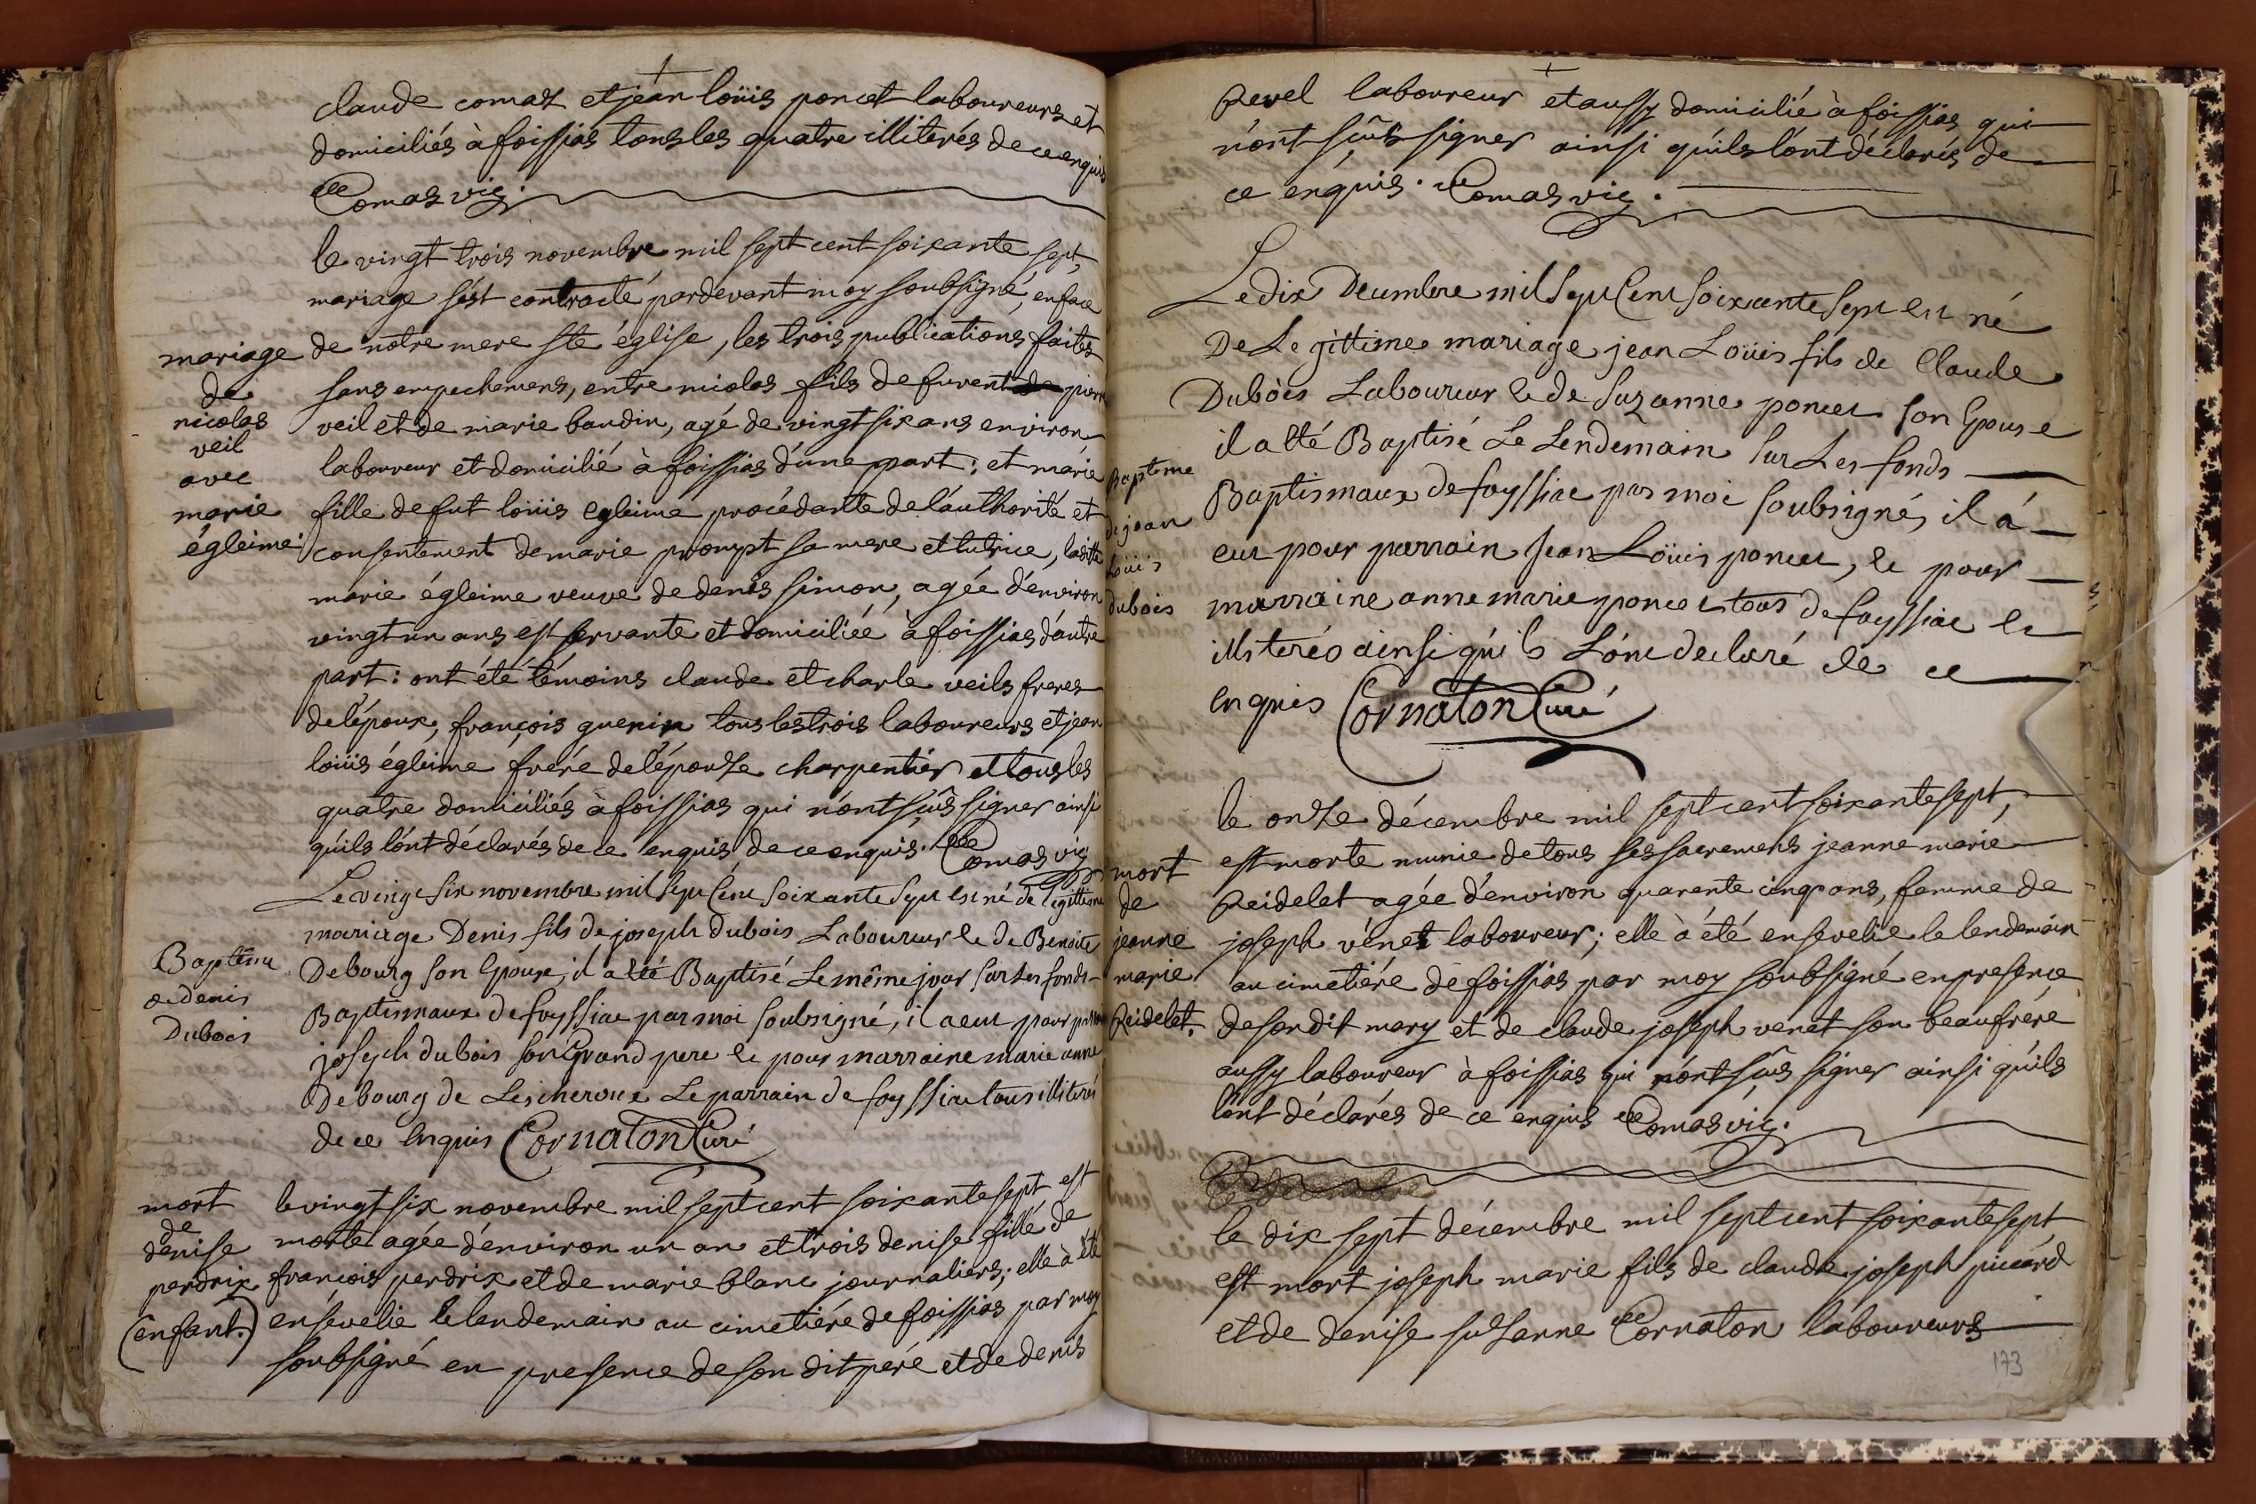 claude comas et jean loüis poncet laboureurs et
domiciliés à foissias tous les quatre illiterés de ce enquis
Comas vic.
le vingt trois novembre mil sept cent soixante sept,
mariage s'ést contracté pardevant moy soubsigné, en face
de nôtre mere ste église, les trois publications faites
sans empechemens, entre nicolas fils de furent pierre
veil et de marie baudin, agé de vingt six ans environ
laboureur et domicilié à foissias d'une part: et marie
fille de fut loüis egleime procédante de l'authorité et
consentement de marie prompt sa mere et tutrice, laditte
marie égleime veuve de denis simon, agée d'environ
vingt un ans est servante et domiciliée à foissias d'autre
part: ont été témoins claude et charle veils freres
de l'époux, françois guenin tous les trois laboureurs et jean
loüis égleime frére de l'épouse charpentier et tous les
quatre domiciliés à foissias qui n'ont sçûs signer ainsi
qu'ils l'ont déclarés de ce enquis de ce enquis. Comas vic
mariage
de
nicolas
veil
avec
marie
égleime.
Le vingt six novembre mil Sept Cent Soixante Sept est né de legittime
mariage Denis fils de joseph dubois Laboureur et de Benoite
Debourg son Epouse, il a été Baptisé Le même jour sur Les fonds
Baptismaux de foyssiac par moi soubsigné, il a eut pour parrain
joseph dubois son Grand pere et pour marraine marie anne
Debourg de Lescheroux Le parrain de foyssiac tous illiterés
de ce Enquis Cornaton Curé
Baptême
de denis
Dubois
le vingt six novembre mil sept cent soixante sept est
morte agée d'environ un an et trois denise fille de
françois perdrix et de marie blanc journaliers; elle à été
ensévelie le lendemain au cimetiére de foissias par moy
soubsigné en presence de son dit peré et de denis
mort
de
denise
perdrix
(enfant.)
Revel laboureur et aussy domicilié à foissias qui
n'ont sçûs signer ainsi qu'ils l'ont déclarés de
ce enquis. Comas vic.
Le dix Decembre mil Sept Cent Soixante Sept est né
De Legittime mariage jean Loüis fils de Claude
Dubois Laboureur et de Suzanne poncet son Epouse
il a été Baptisé Le Lendemain sur Les fonds
Baptismaux de foyssiac par moi soubsigné, il a
eut pour parrain Jean Loüis poncet, et pour
marraine anne marie poncet tous de foyssiac et
illiterés ainsi qu'ils L'ont declaré de ce
Enquis Cornaton Curé
Baptême
de jean
Loüis
dubois
le onze décembre mil sept cent soixante sept,
est morte munie de tous ses sacremens jeanne marie
Reidelet agée d'environ quarente cinq ans, femme de
joseph vénet laboureur; elle à été ensevelie le lendemain
au cimetiére de foissias par moy soubsigné en presence
de son dit mary et de claude joseph venet son beaufrére
aussy laboureur à foissias qui n'ont sçûs signer ainsi qu'ils
l'ont déclarés de ce enquis Comas vic.
mort
de
jeanne
marie
Reidelet.
le dix sept décembre mil sept cent soixante sept
est mort joseph marie fils de claude joseph piccard
et de denise susanne Cornaton laboureurs
173